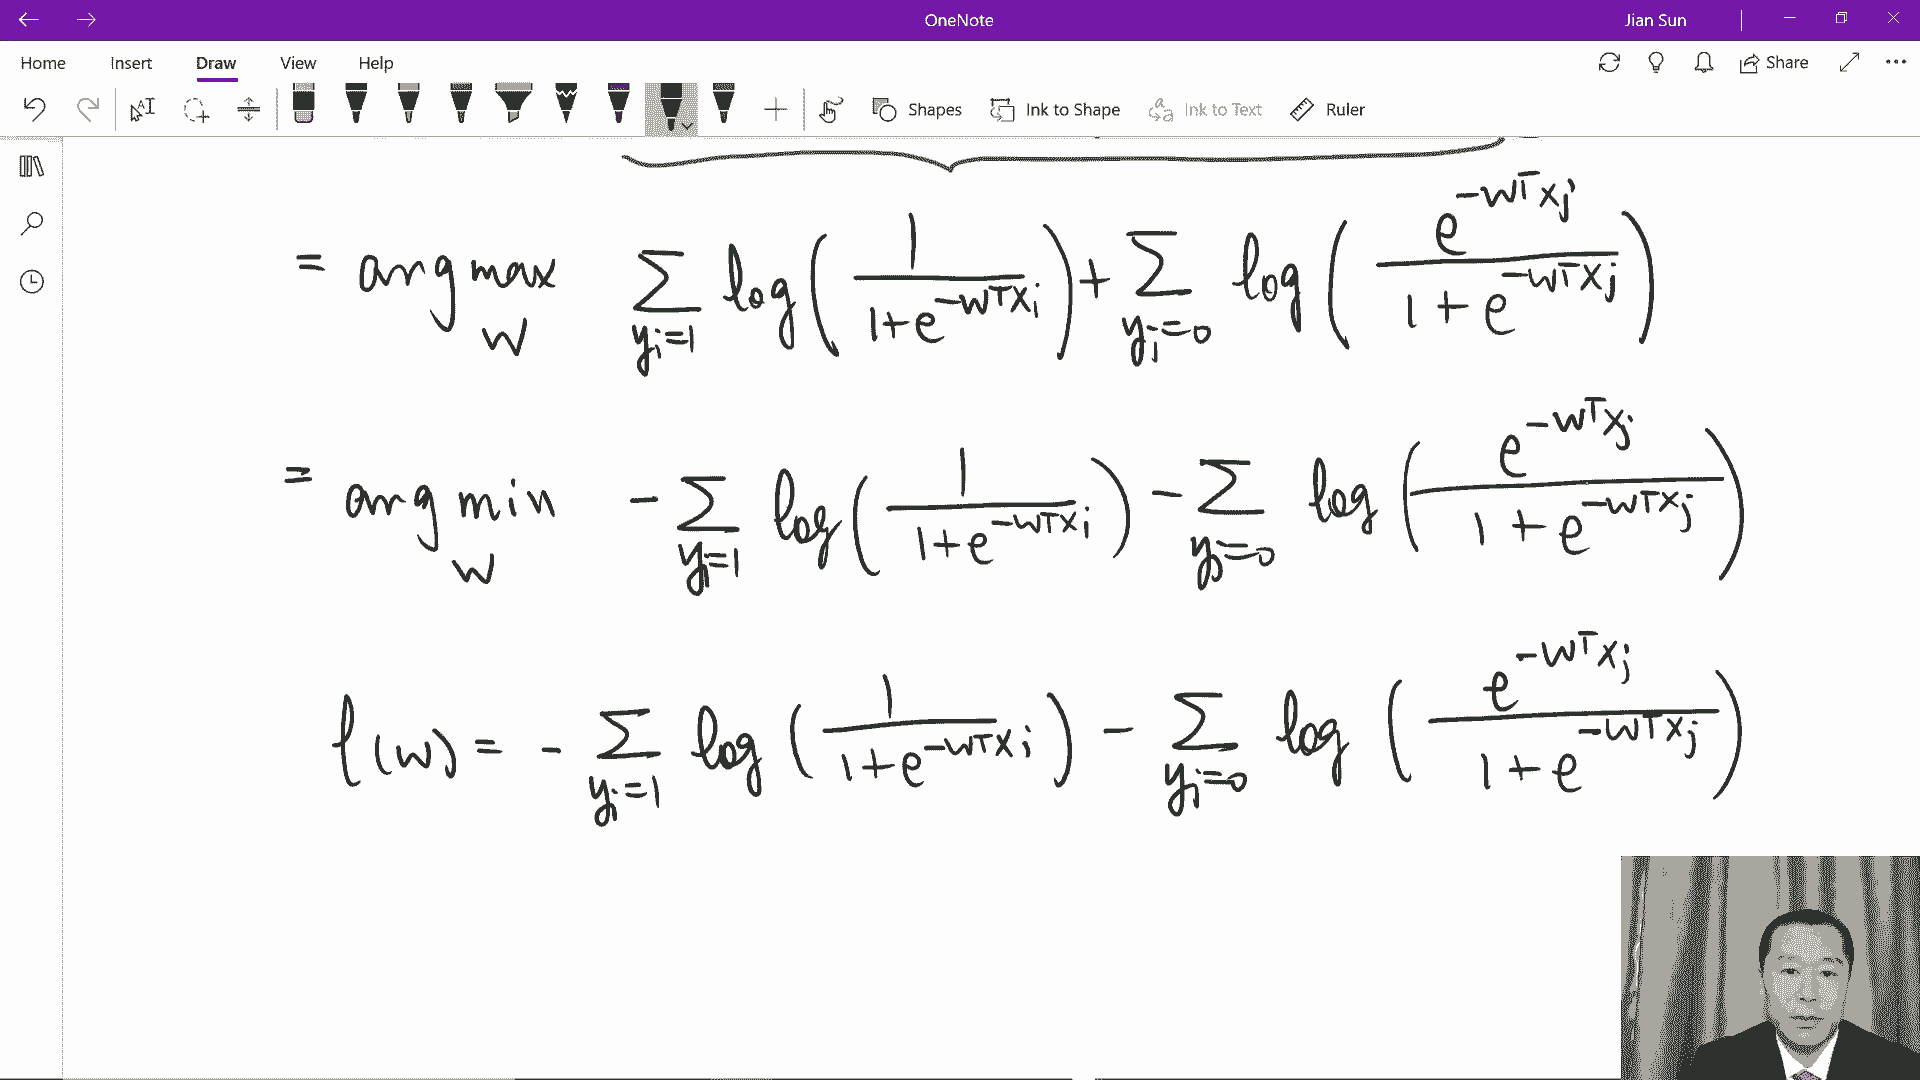 OneNote
Jian Sun
Home Insert Draw View Help
Share
Shapes Ink to Shape Ink to Text Ruler
= arg max_w Σ_{y_i=1} log(1/(1+e^{-w^T x_i})) + Σ_{y_j=0} log(e^{-w^T x_j}/(1+e^{-w^T x_j}))
= arg min_w - Σ_{y_i=1} log(1/(1+e^{-w^T x_i})) - Σ_{y_j=0} log(e^{-w^T x_j}/(1+e^{-w^T x_j}))
l(w) = - Σ_{y_i=1} log(1/(1+e^{-w^T x_i})) - Σ_{y_j=0} log(e^{-w^T x_j}/(1+e^{-w^T x_j}))